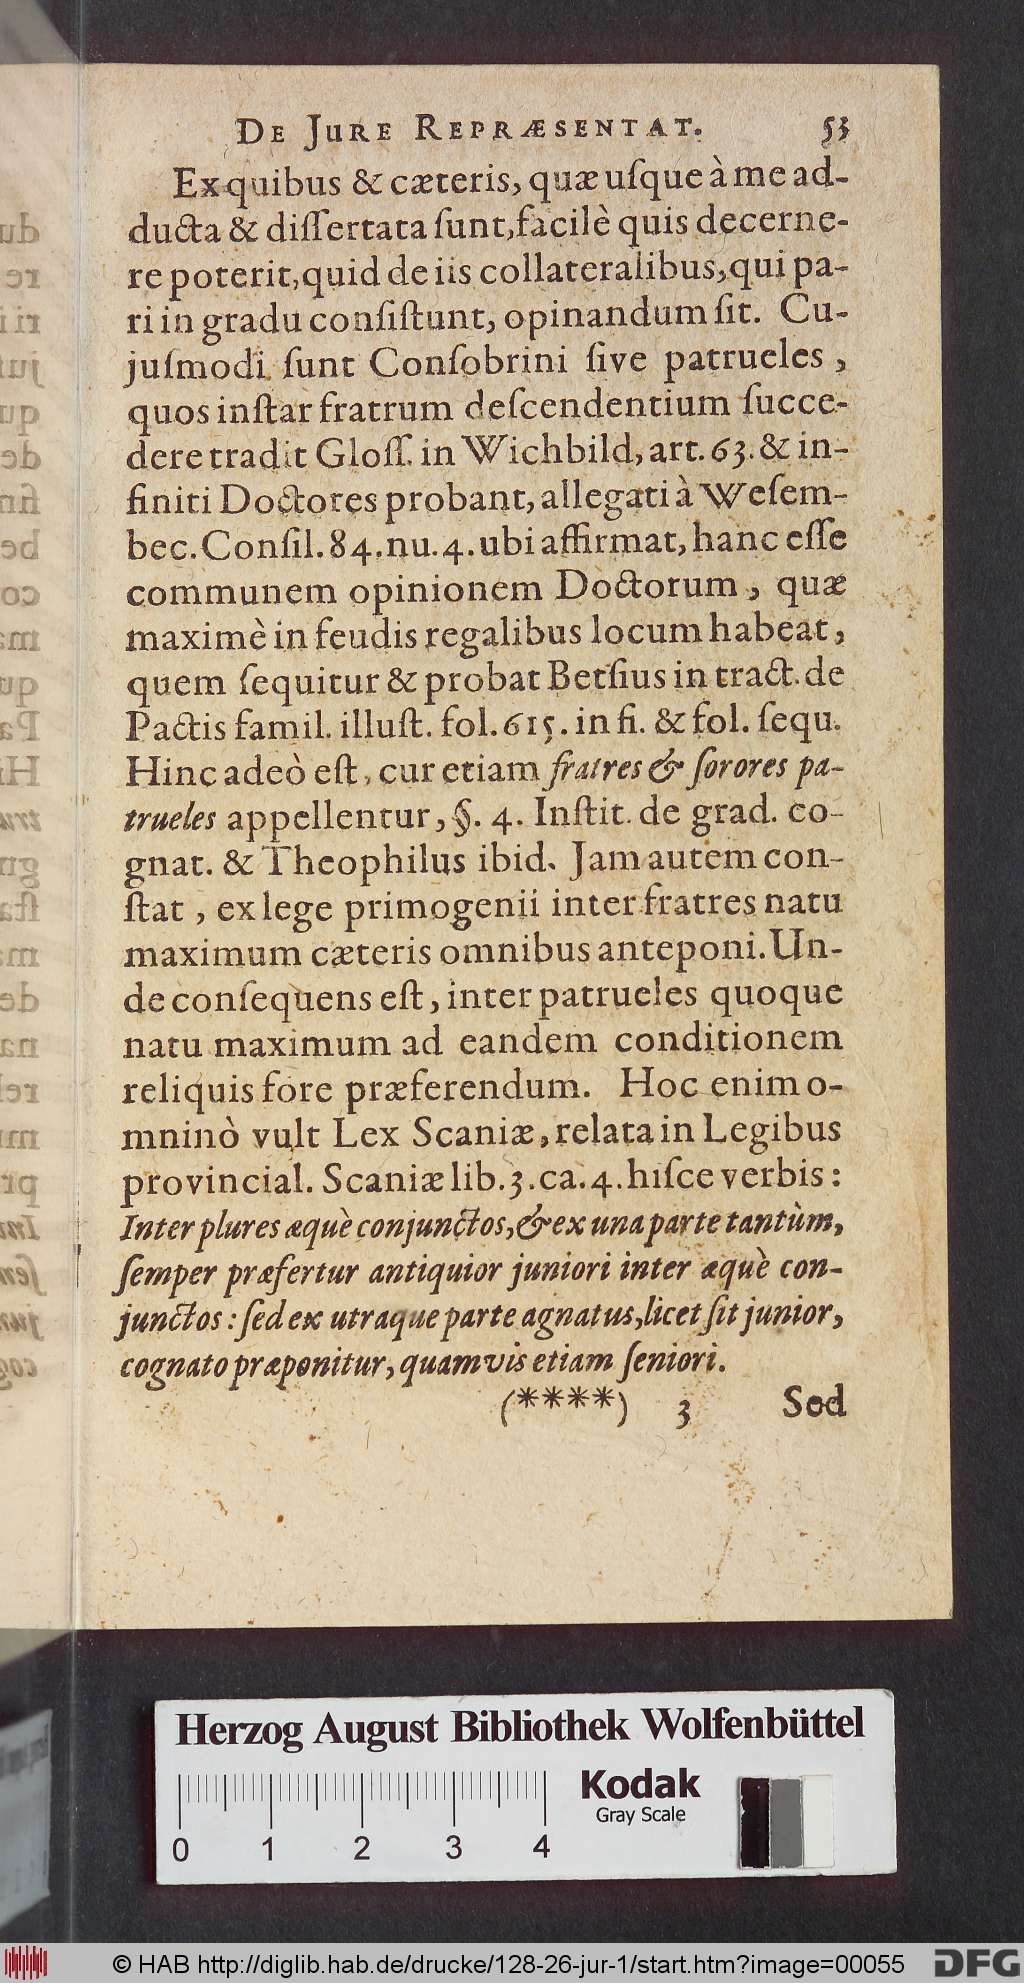 DE JURE REPRÆSENTAT. 53
Ex quibus & cæteris, quæ uſque à me ad-
ducta & diſſertata ſunt, facilè quis decerne-
re poterit, quid de iis collateralibus, qui pa-
ri in gradu conſiſtunt, opinandum ſit. Cu-
juſmodi ſunt Conſobrini ſive patrueles,
quos inſtar fratrum deſcendentium ſucce-
dere tradit Gloſſ. in Wichbild, art. 63. & in-
finiti Doctores probant, allegati à Weſem-
bec. Conſil. 84. nu. 4. ubi affirmat, hanc eſſe
communem opinionem Doctorum, quæ
maximè in feudis regalibus locum habeat,
quem ſequitur & probat Betſius in tract. de
Pactis famil. illuſt. fol. 615. in fi. & fol. ſequ.
Hinc adeò eſt, cur etiam fratres & ſorores pa-
trueles appellentur, §. 4. Inſtit. de grad. co-
gnat. & Theophilus ibid. Jam autem con-
ſtat, ex lege primogenii inter fratres natu
maximum cæteris omnibus anteponi. Un-
de conſequens eſt, inter patrueles quoque
natu maximum ad eandem conditionem
reliquis fore præferendum. Hoc enim o-
mninò vult Lex Scaniæ, relata in Legibus
provincial. Scaniæ lib. 3. ca. 4. hiſce verbis:
Inter plures æquè conjunctos, & ex una parte tantùm,
ſemper præfertur antiquior juniori inter æquè con-
junctos: ſed ex utraque parte agnatus, licet ſit junior,
cognato præponitur, quamvis etiam ſeniori.
(****) 3 Sed
Herzog August Bibliothek Wolfenbüttel
Kodak
Gray Scale
0 1 2 3 4
© HAB http://diglib.hab.de/drucke/128-26-jur-1/start.htm?image=00055 DFG